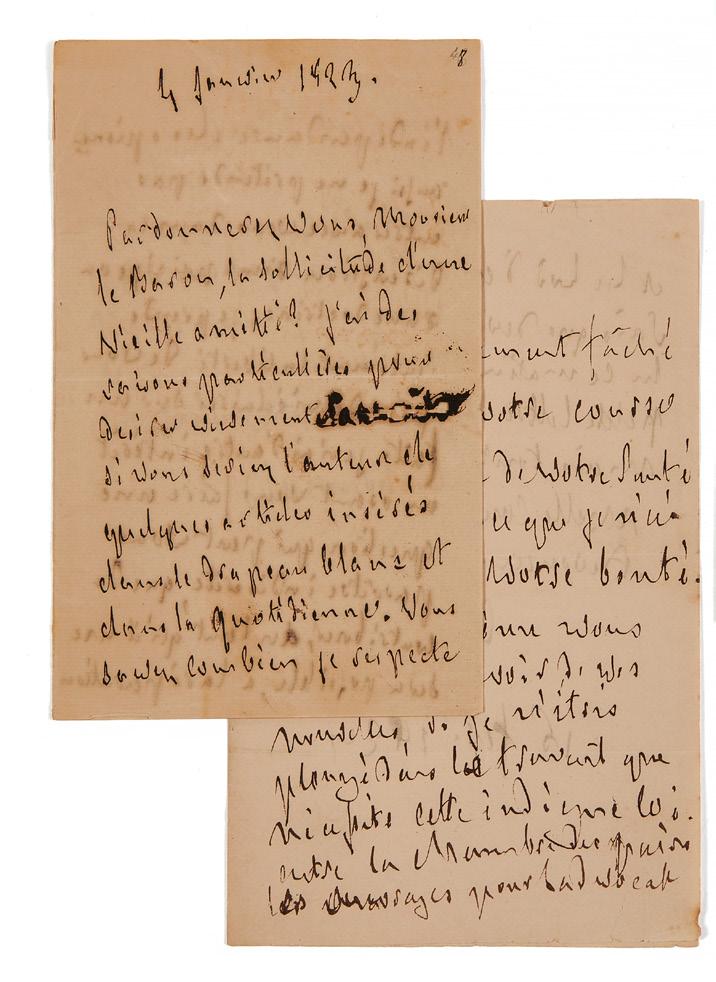 48
4 Janvier 182
Pardonnerez vous, Monsieur
le Baron, la sollicitude d'une
vieille amitié? j'ai des
raisons particulières pour
desirer vivement
si vous seriez l'auteur de
quelques articles insérés
dans le Drapeau blanc et
dans la quotidienne. Vous
savez combien je respecte
fâché
votre course
de votre Santé
que je
votre bonté.
vous
voir de vos
nouvelles si je n'étois
plongé dans le travail que
nécessite cette indigne loi.
outre la Chambre des pairs
les ouvrages pour